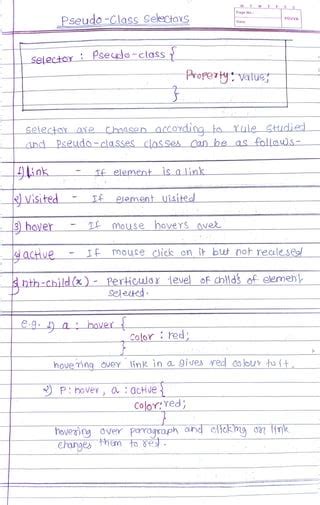 Pseudo-Class Selectors
Page No.:
Date:
YOUVA
selector : Pseudo-class {
Property: Value;
}
selector are choosen according to rule studied
and Pseudo-classes classes can be as follows-
1) link - If element is a link
2) Visited - If element visited
3) hover - If mouse hovers over
4) active - If mouse click on it but not realesed
5) nth-child(x) - Perticular level of child's of element
selected.
e.g. 1) a : hover {
color : red;
}
hovering over link in a gives red colour to it.
2) P : hover, a : active {
color: red;
}
hovering over paragraph and clicking on link
changes them to red.